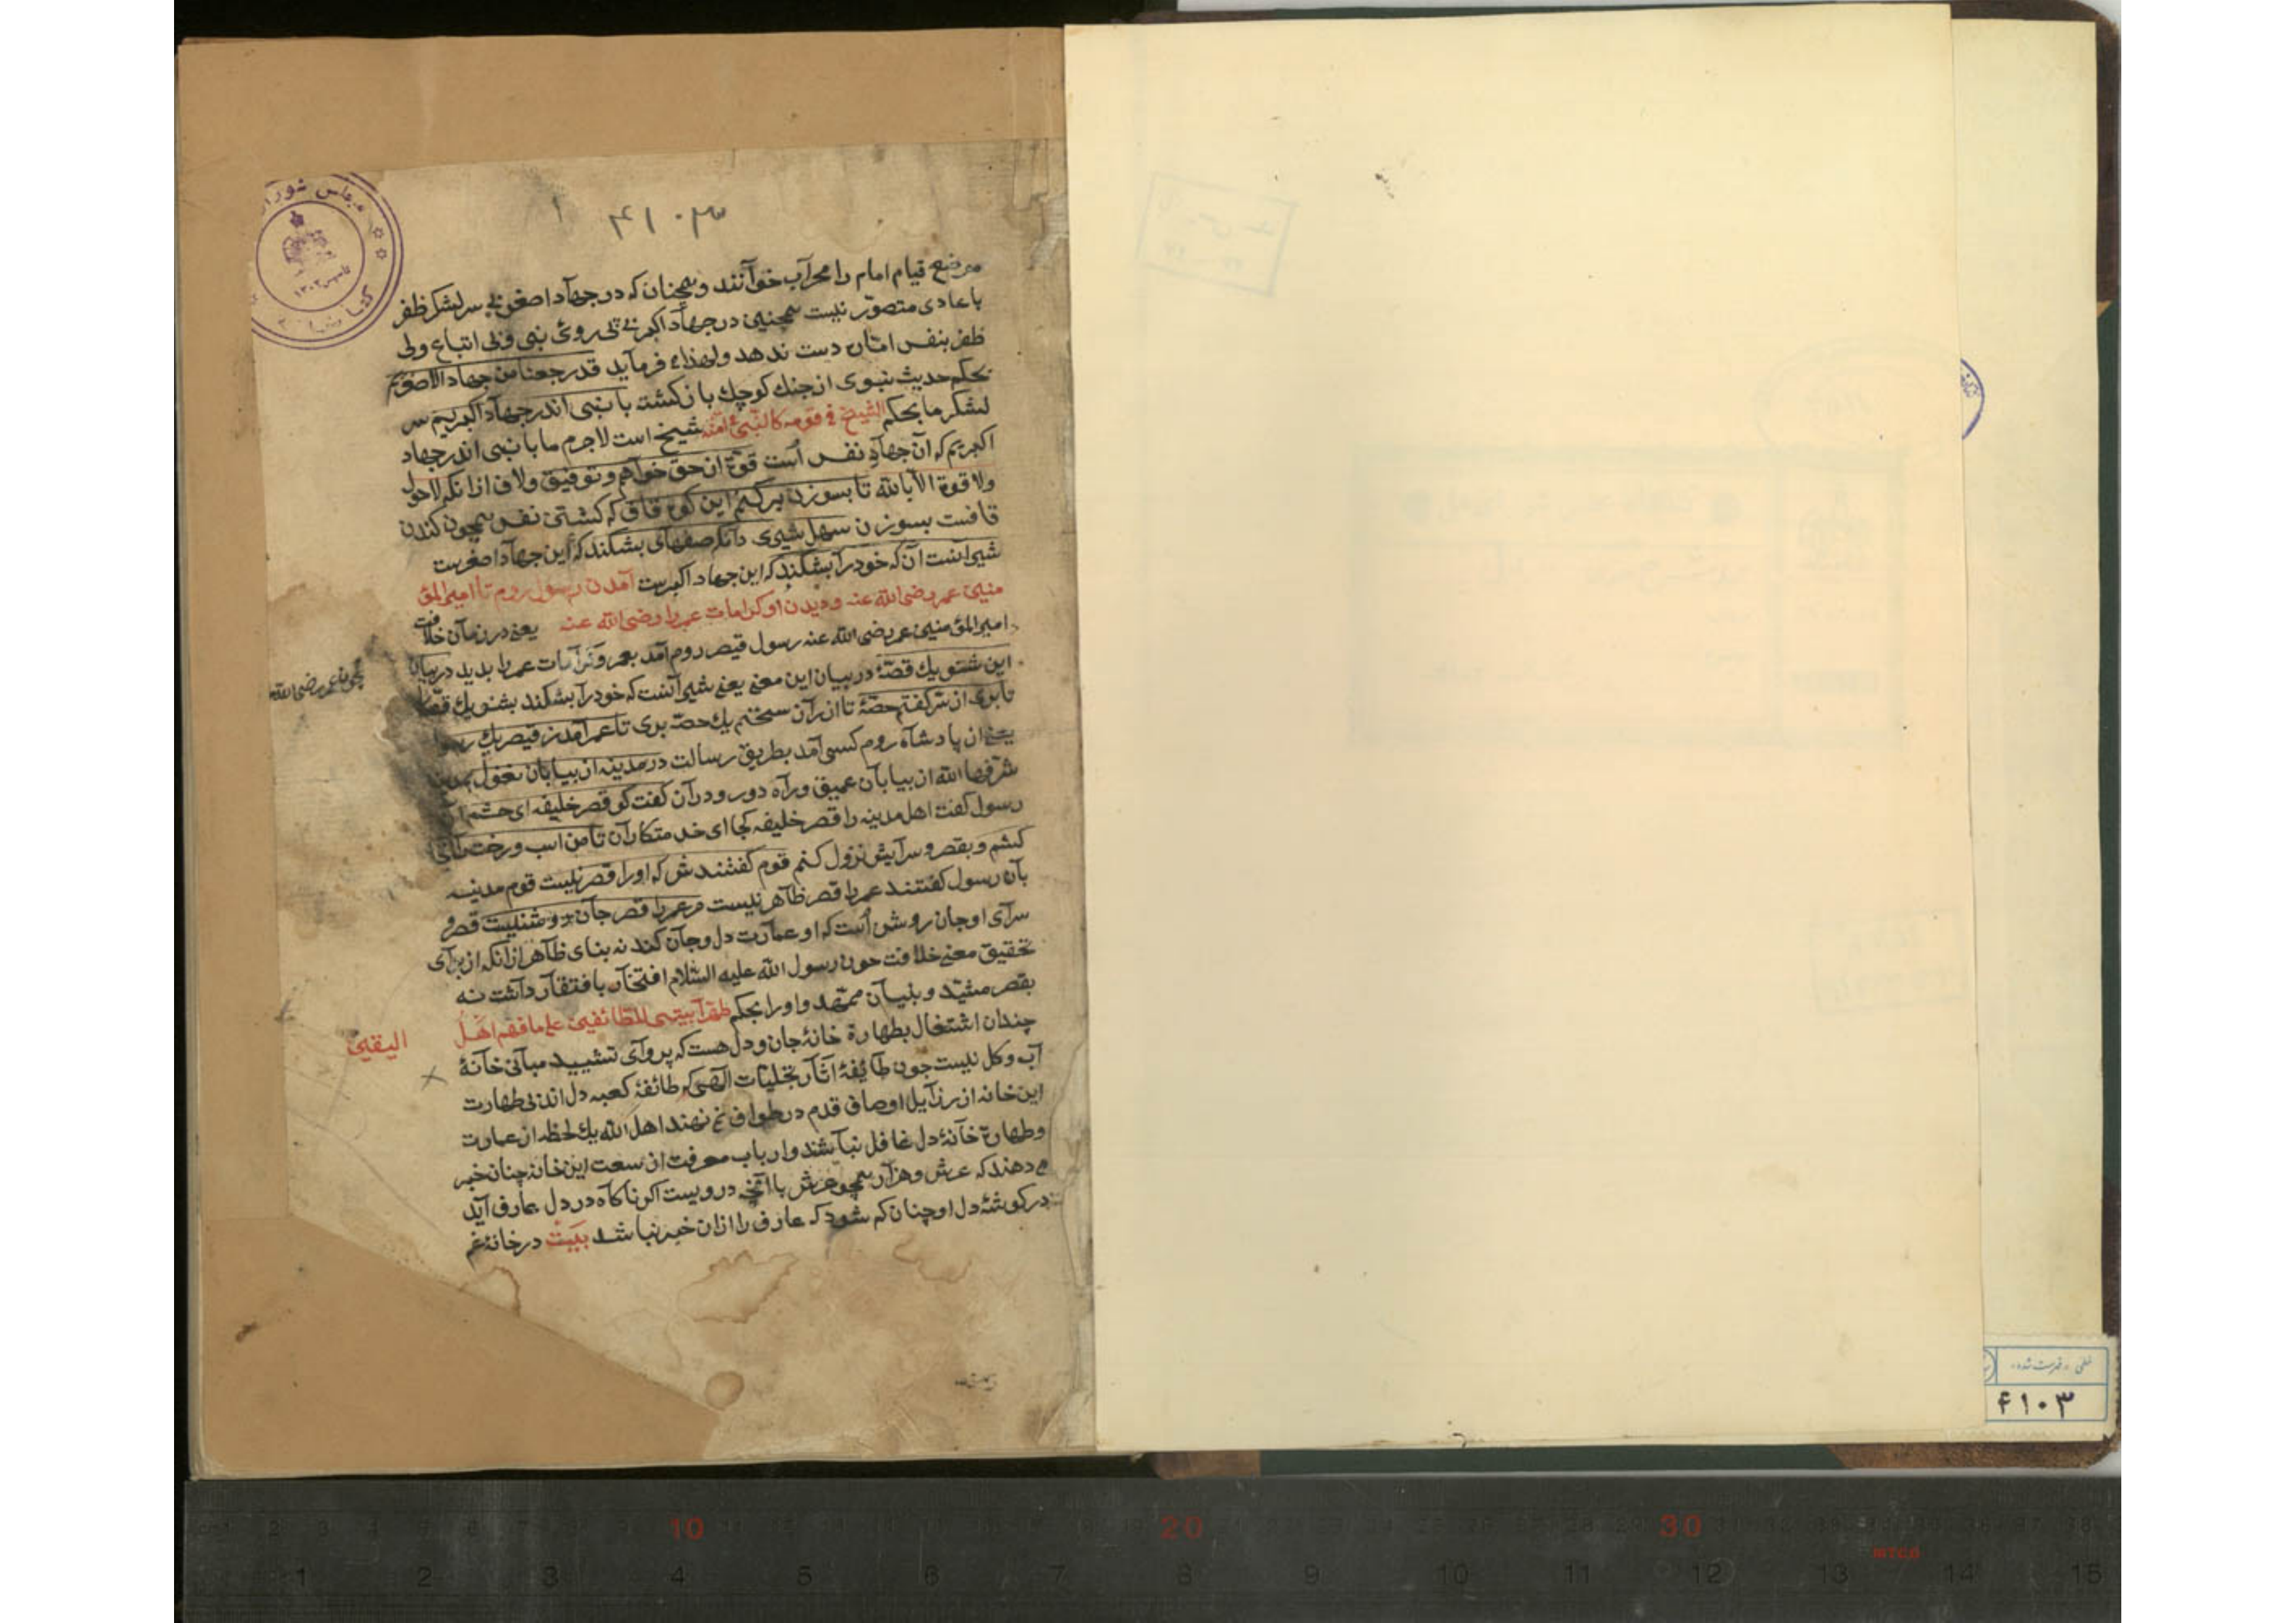 ۴۱۰۳ ۱
موضع قیام امام را محراب خوانند و همچنان که در جهاد اصغر بی سرلشکر ظفر
باعادی متصور نیست همچنین در جهاد اکبر بی پی روی نبی و بی اتباع ولی
ظفر بنفس امان دست ندهد ولهذا می فرماید قد رجعنا من جهاد الاصغریم
بحکم حدیث نبوی از جنك کوچك باز کشته با نبی اندر جهاد اکبریم سر
لشکر ما بحکم الشیخ فی قومه کالنبی فی امته شیخ است لاجرم ما با نبی اندر جهاد
اکبریم که آن جهاد نفس است قوة از حق خواهم و توفیق ولاف از انکه لاحول
ولا قوة الا بالله تا بسوزن برکنم این کوه قاف که کشتن نفس همچون کندن
قافست بسوزن سهل شیری دانکه صفهای بشکند که این جهاد اصغرست
شیر آنست آن که خود را بشکند که این جهاد اکبرست آمدن رسول روم تا امیرالمؤ
منین عمر رضی الله عنه و دیدن او کرامات عمر را رضی الله عنه یعنی در زمان خلافت
امیرالمؤمنین عمر رضی الله عنه رسول قیصر روم آمد بعمر و کرامات عمر را بدید در بیان
این شنو یك قصة در بیان این معنی یعنی شیر آنست که خود را بشکند بشنو یك قصه
عمر رضی الله
تا بری از سر کفتم حصة تا از ان سخنم یك حصه بری تا عمر آمد ز قیصر یك رسول
یعنی از پادشاه روم کسی آمد بطریق رسالت در مدینه از بیابان نغول بمدینه
شرفها الله از بیابان عمیق و راه دور و دران کفت کو قصر خلیفه ای حشم
رسول کفت اهل مدینه را قصر خلیفه کجا ای خدمتکاران تا من اسب و رخت را آنجا
کشم و بقصر و سرایش نزول کنم قوم کفتندش که او را قصر نیست قوم مدینه
بآن رسول کفتند عمر را قصر ظاهر نیست مر عمر را قصر جان روشنیست قصر و
سرای او جان روشن است که او عمارت دل و جان کند نه بنای ظاهر از انکه از برای
تحقیق معنی خلافت چون رسول الله علیه السلام افتخار بافتقار داشت نه
بقصر مشید و بنیان ممهد و او را بحکم طهرا بیتی للطائفین علی ما فهم اهل الیقین
چندان اشتغال بطهارة خانۀ جان و دل هست که پروای تشیید مبانی خانۀ
آب و کل نیست چون طائفۀ آثار تجلیات الهی که طائفۀ کعبه دل اند بی طهارت
این خانه از رزایل اوصاف قدم در طواف نمی نهند اهل الله یك لحظه از عمارت
و طهارة خانۀ دل غافل نباشند و ارباب معرفت از سعت این خانه چنان خبر
می دهند که عرش و هزار همچو عرش با آنچه دروست اکر ناکاه در دل عارف آید
در کوشۀ دل او چنان کم شود که عارف را از ان خبر نباشد بیت در خانۀ غم
۴۱۰۳